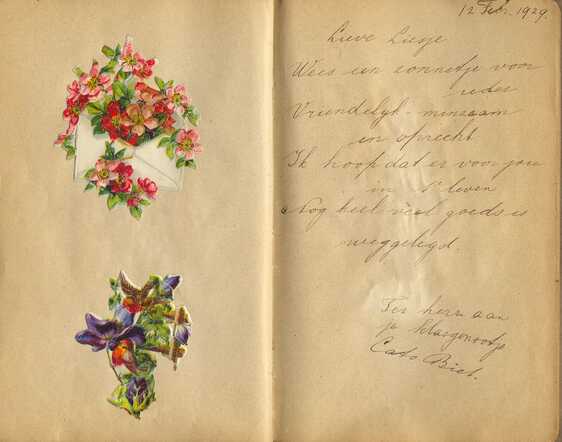 12 Febr. 1929.
Lieve Liesje
Wees een zonnetje voor
ieder
Vriendelijk - minzaam
en oprecht
Ik hoop dat er voor jou
in 't leven
Nog heel veel goeds is
weggelegd.
Ter herr. aan
je klasgenootje
Cato Biet.